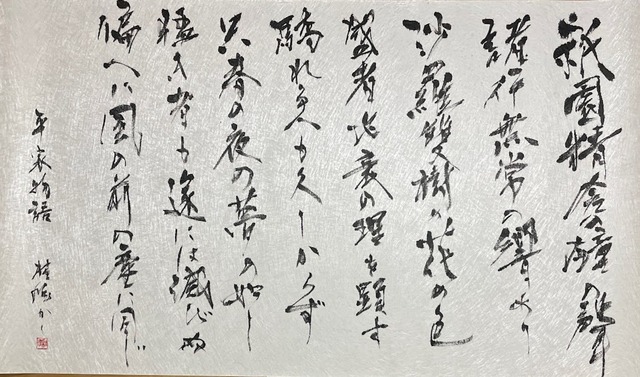 祇園精舎の鐘の聲
諸行無常の響あり
沙羅雙樹の花の色
盛者必衰の理を顕す
驕れる人も久しからず
只春の夜の夢の如し
猛き者も遂には滅びぬ
偏へに風の前の塵に同じ
平家物語 かく